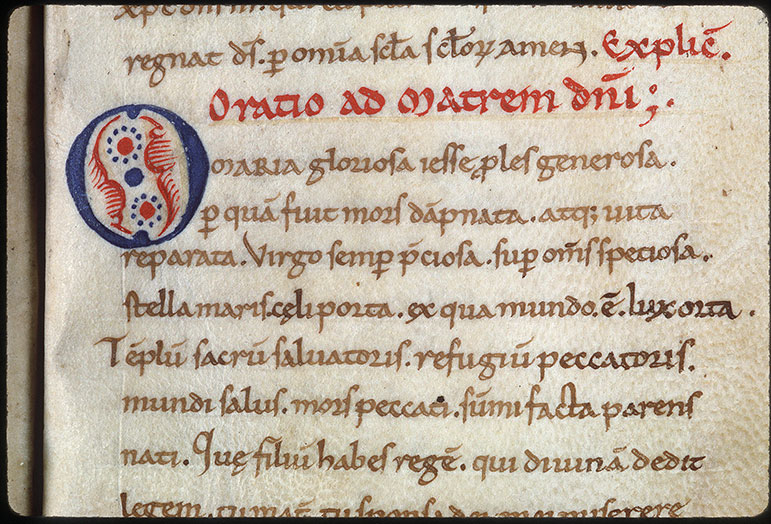 regnat dñs. ꝑ omĩa scła scłoꝝ amen. Explič.
Oratio ad Matrem dñi;.
O MARIA gloriosa iesse ꝓles generosa.
ꝑ quã fuit mors dãpnata. atq; uita
reparata. Virgo semꝑ p̃ciosa. suꝑ om̃s speciosa.
stella maris. cęli porta. ex qua mundo. ẽ. lux orta.
Tẽplũ sacrũ saluatoris. refugiũ peccatoris.
mundi salus. mors peccati. sũmi facta parens
nati. Quę filiũ habes regẽ. qui diuinã dedit
legem. tu mat̃. tu sponsa dei mei miserere